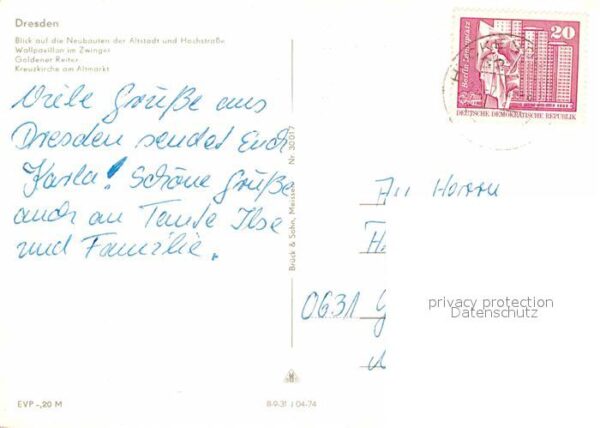 Dresden
Blick auf die Neubauten der Altstadt und Hochstraße
Wallpavillon im Zwinger
Goldener Reiter
Kreuzkirche am Altmarkt
Viele Grüße aus
Dresden sendet Euch
Karla! Schöne Grüße
auch an Tante Ilse
und Familie.
EVP -,20 M
Brück & Sohn, Meissen Nr. 30017
B-9-31 J 04-74
20
Berlin-Leninplatz
DEUTSCHE DEMOKRATISCHE REPUBLIK
An Herrn
0631
privacy protection
Datenschutz